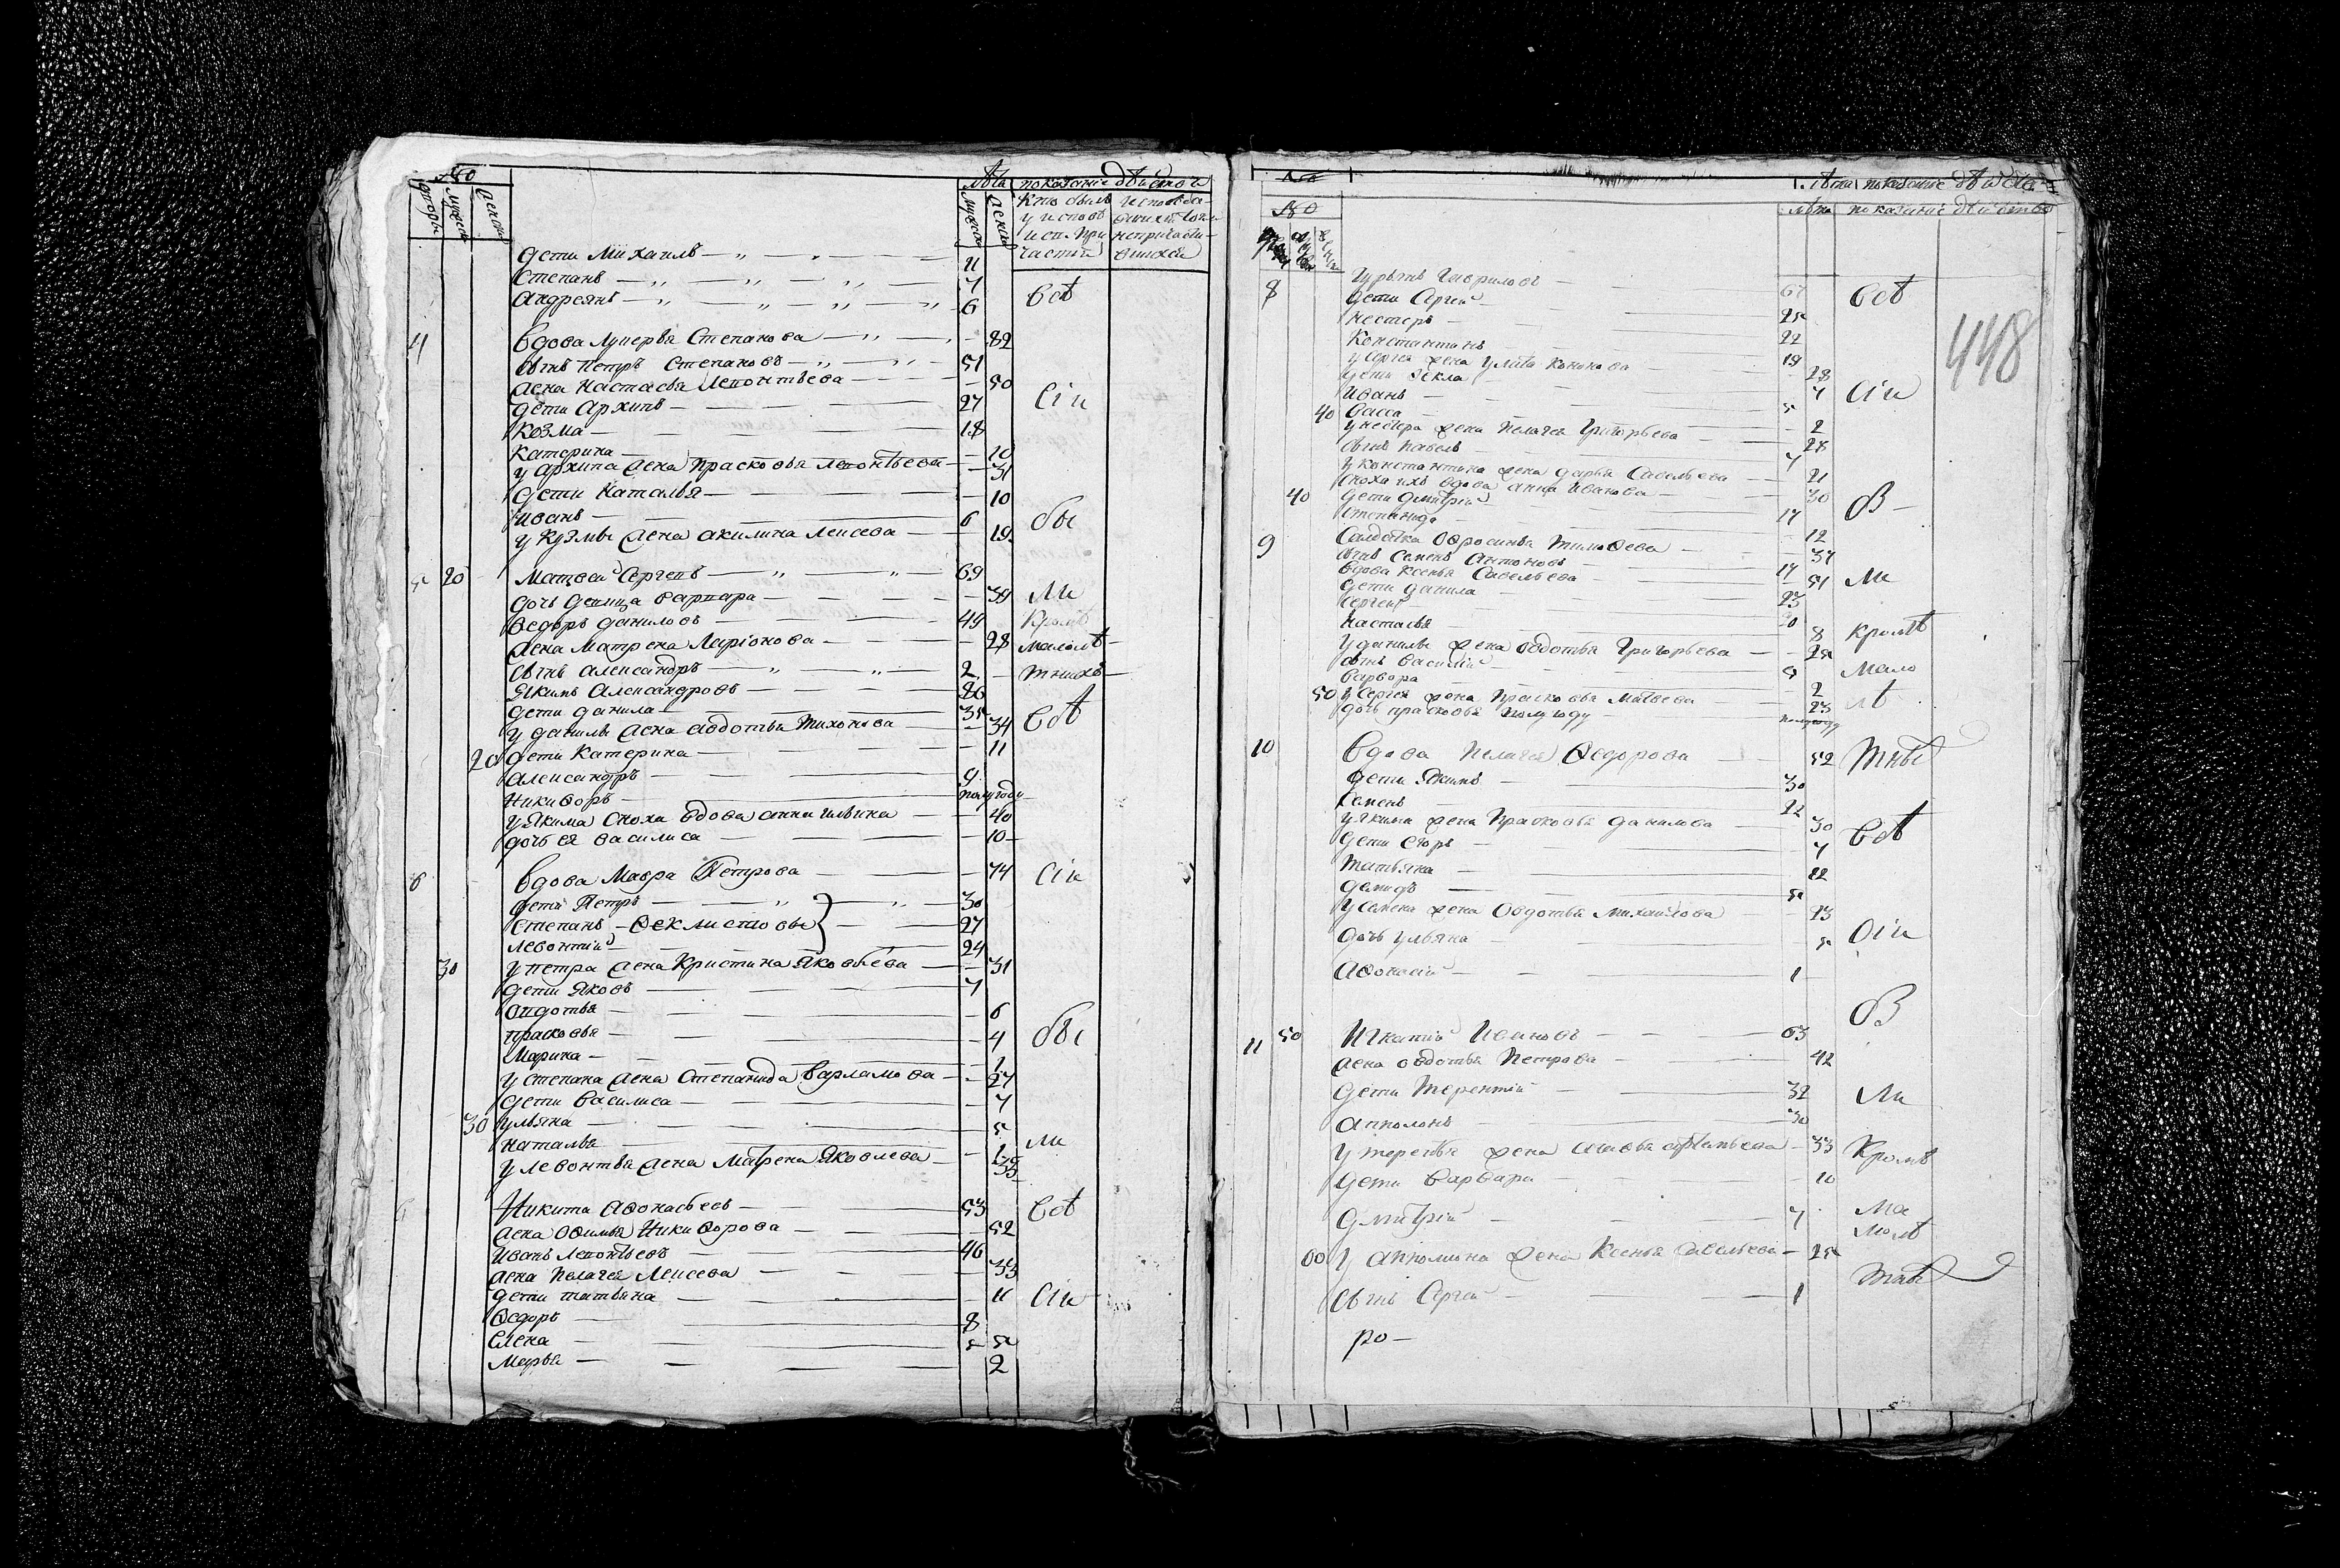 №
дворы мужескъ женскъ
лѣта показание дѣйства
мужескъ женскъ
Кто былъ
у испов
и св. При
частия
дети Михаилъ 11
Степанъ 7
Андреянъ 6
всѣ
4 вдова Лукерья Степанова 82
сынъ Петръ Степановъ 51
жена Настасья Леонтьева 50
дети Архипъ 27
сiи
Козма 18
Катерина 10
у Архипа жена Прасковья Леонтьева 31
дети Наталья 10
Иванъ 6
бы
у Кузмы жена Акилина Алексева 19
5 20 Матвей Сергеевъ 69
дочь девица Варвара 39
ли
Ѳедоръ Даниловъ 49
Кромѣ
жена Матрена Ларiонова 28
малолѣ
сынъ Александръ 2
тнихъ
Якимъ Александровъ 86
дети Данила 35
у Данилы жена Авдотья Тихонова 34
всѣ
20 дети Катерина 11
Александръ 9
Никиѳоръ полугоду
у Якима сноха вдова Анна Ильина 40
дочь ея Василиса 10
6 вдова Мавра Петрова 74
сiи
дети Петръ 30
Степанъ Ѳеклистовы 27
Левонтий 24
30 у Петра жена Кристина Яковлева 31
дети Яковъ 7
Авдотья 6
Прасковья 4
бы
Марина 1
у Степана жена Степанида Варламова 27
дети Василиса 7
30 Ульяна 5
Наталья 1
ли
у Левонтья жена Матрена Яковлева 33
Никита Аѳонасьевъ 53
всѣ
жена Оѳимья Никиѳорова 52
Иванъ Леонтьевъ 46
жена Пелагея Алексева 33
дети Татьяна 11
сiи
Ѳедоръ 8
Елена 5
Марья 2
№
лѣта показание дѣйства
№
лѣта показание дѣйства
448
8 Гурьянъ Гавриловъ 67
всѣ
дети Сергей 25
Нестеръ 22
Константинъ 19
у Сергея жена Улита Кононова 28
дети Ѳекла 7
сiи
Иванъ 5
40 Васса 2
у Нестера жена Пелагея Григорьева 28
сынъ Павелъ 7
у Константина жена Дарья Савельева 21
сноха ихъ вдова Анна Иванова 30
40 дети Дмитрий 17
б
Степанида 12
9 Солдатка Оѳросинья Тимоѳева 37
сынъ Семенъ Антоновъ 17
вдова Ксенья Савельева 51
ли
дети Данила 23
Сергей 20
Настасья 8
кромѣ
у Данилы жена Овдотья Григорьева 25
сынъ Василий 9
мало
Варвара 2
50 у Сергея жена Прасковья Матвеева 23
лѣ
дочь Прасковья полугоду полугоду
10 вдова Пелагея Ѳедорова 52
тны
дети Якимъ 30
Семенъ 22
у Якима жена Прасковья Данилова 30
всѣ
дети Егоръ 7
Татьяна 12
Демидъ 5
у Семена жена Овдотья Михайлова 23
дочь Ульяна 5
сiи
Аѳонасий 1
б
11 50 Игнатий Ивановъ 63
жена Овдотья Петрова 42
дети Терентий 32
ли
Апполонъ 30
у Терентья жена 33
Кромѣ
дети Варвара 10
Дмитрий 7
ма
лолѣ
60 у Апполона жена Ксенья Савельева 25
тны
сынъ Сергей 1
ро